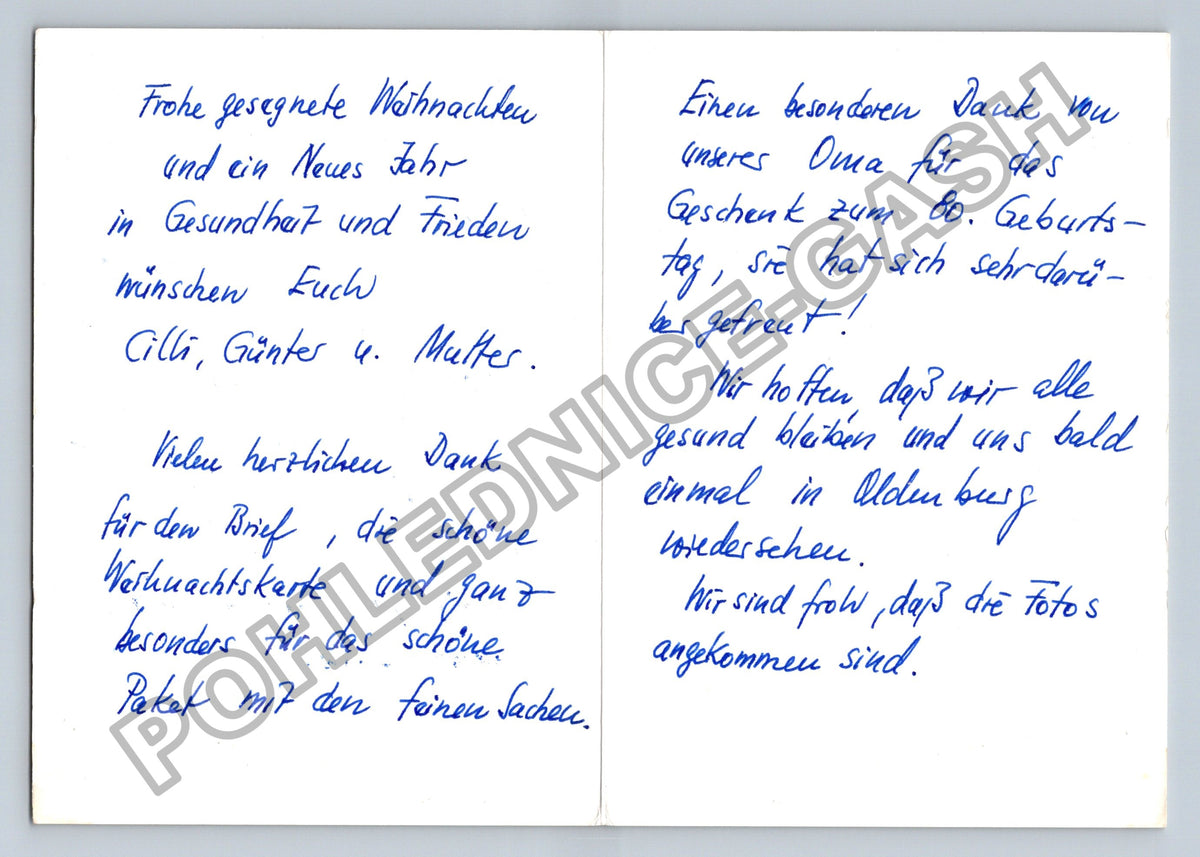 Frohe gesegnete Weihnachten
und ein Neues Jahr
in Gesundheit und Frieden
wünschen Euch
Cilli, Günter u. Mutter.
Vielen herzlichen Dank
für den Brief, die schöne
Weihnachtskarte und ganz
besonders für das schöne
Paket mit den feinen Sachen.
Einen besonderen Dank von
unserer Oma für das
Geschenk zum 80. Geburts-
tag, sie hat sich sehr darü-
ber gefreut!
Wir hoffen, daß wir alle
gesund bleiben und uns bald
einmal in Oldenburg
wiedersehen.
Wir sind froh, daß die Fotos
angekommen sind.
POHLEDNICE-GASH